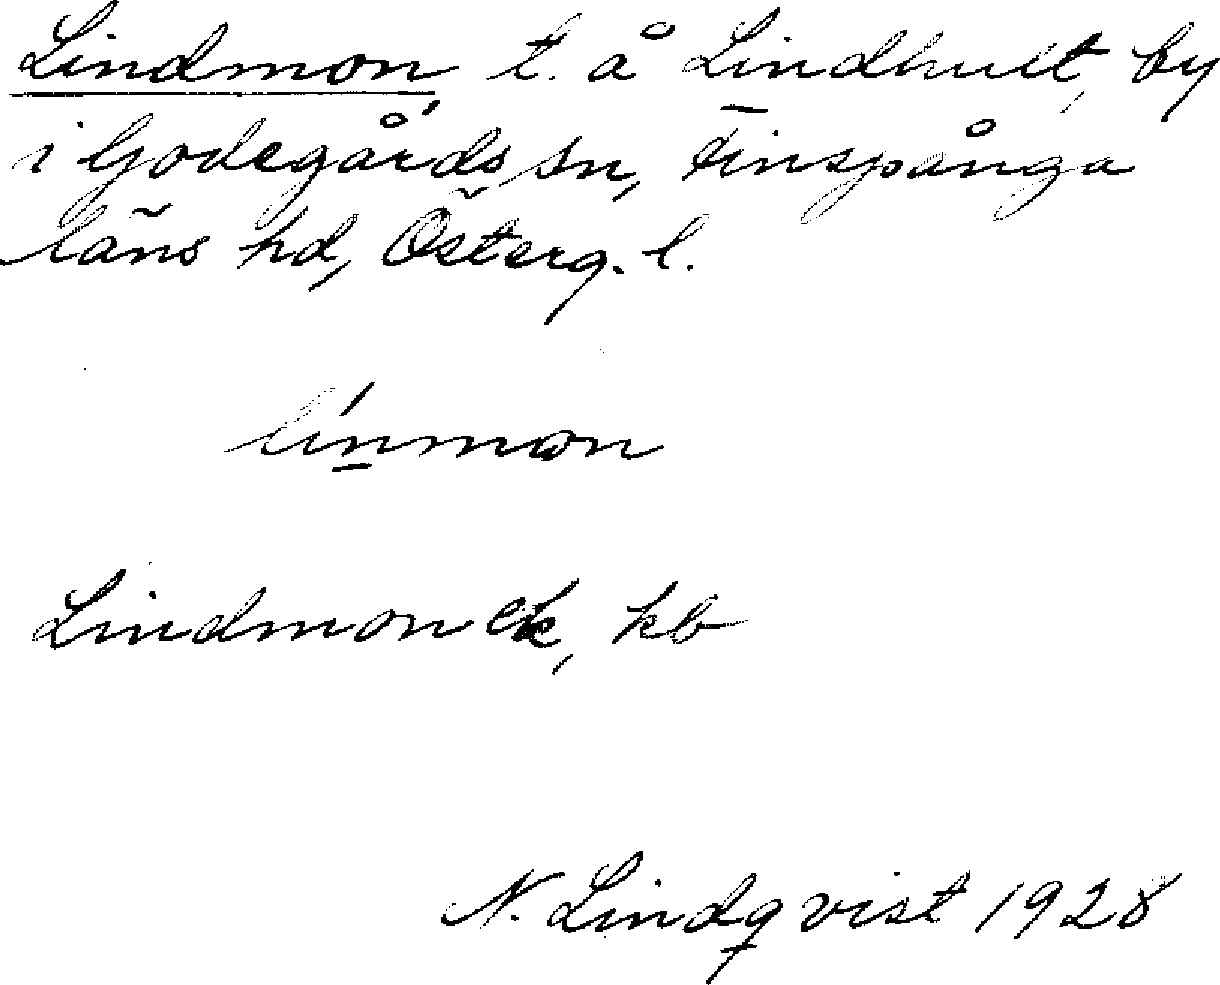 Lindmon, t. å Lindhult, by
i Godegårds sn, Finspånga
läns hd, Österg. l.
Lindmon ek, kb
N. Lindqvist 1928